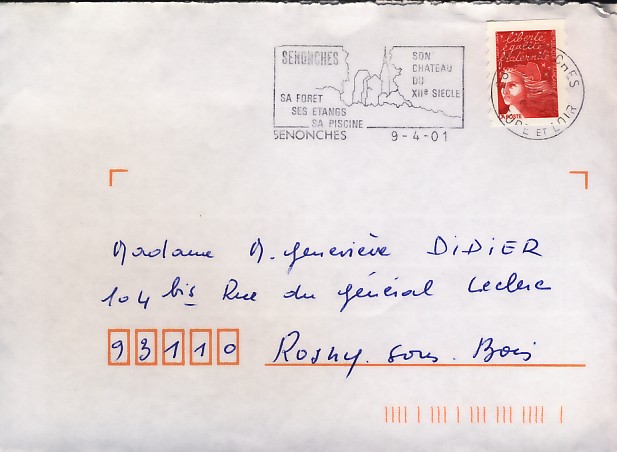 SENONCHES
SON
CHATEAU
DU
XIIe SIECLE
SA FORET
SES ETANGS
SA PISCINE
SENONCHES 9-4-01
liberté
égalité
fraternité
LA POSTE
EURE ET LOIR
Madame M. Geneviève DIDIER
104 bis Rue du Général Leclerc
93110 Rosny. sous. Bois